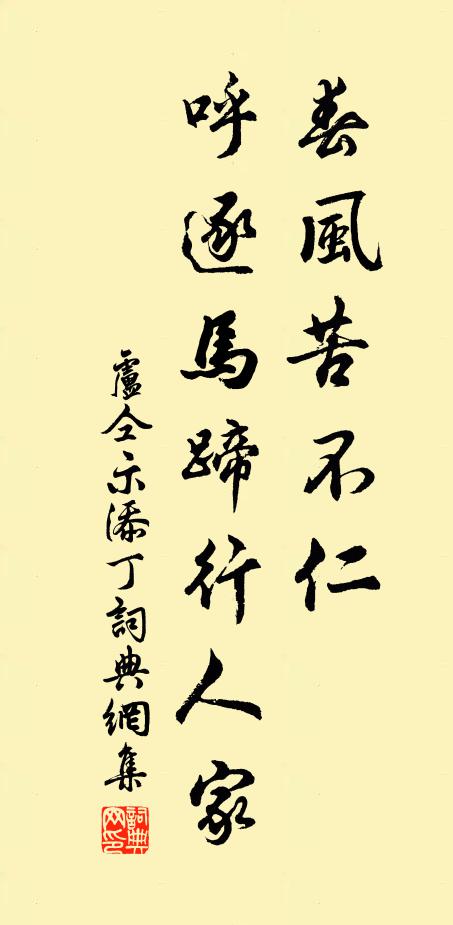 春風苦不仁
呼逐馬蹄行人家
盧仝示添丁詞典網集
詞典網印